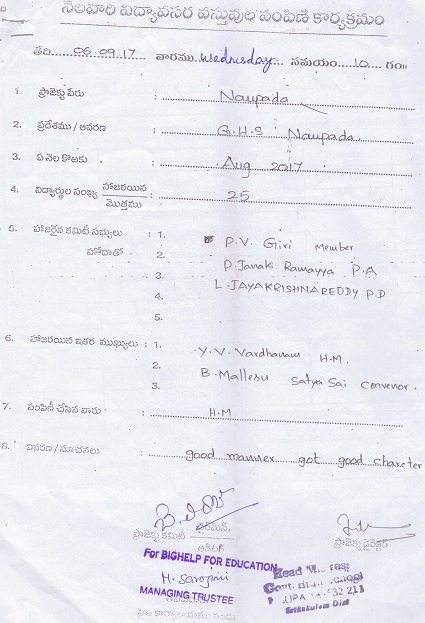 నెలవారి విద్యావసర వస్తువుల పంపిణి కార్యక్రమం
తేది 06.09.17 వారము Wednesday సమయం 10 గం॥
1. ప్రాజెక్టు పేరు : Naupada
2. ప్రదేశము / ఆవరణ : G.H.S Naupada
3. ఏ నెల కొఱకు : Aug 2017
4. విద్యార్థుల సంఖ్య హాజరయిన / మొత్తము : 25
5. హాజరైన కమిటీ సభ్యులు : 1. P.V. Giri Member
హోదాతో 2. P. Janaki Ramayya P.A
3. L. JAYAKRISHNA REDDY P.D
4.
5.
6. హాజరయిన ఇతర ముఖ్యులు : 1. Y.V. Vardhanam H.M.
2. B. Mallesu Satya Sai Convenor.
3.
7. పంపిణీ చేసిన వారు : H.M
8. వివరణ / సూచనలు : good manner got good charcter
ప్రాజెక్టు కమిటీ ఛైర్మన్. ప్రాజెక్టు డైరెక్టర్
For BIGHELP FOR EDUCATION
M. Sarojini
MANAGING TRUSTEE
Head
Govt. High
532 211
Srikakulam Dist